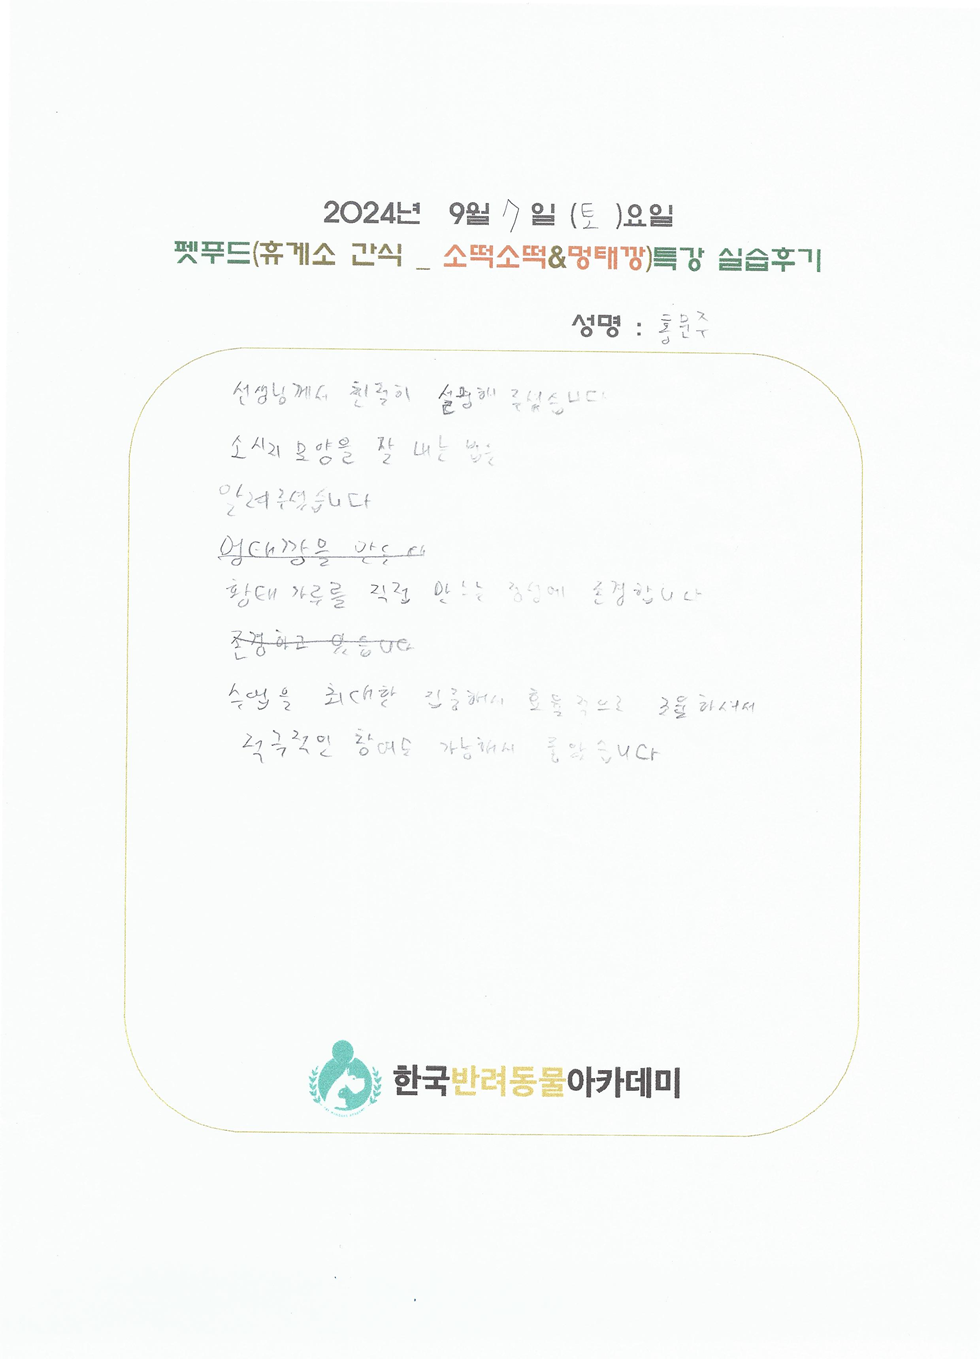 2024년 9월 7일 (토)요일
펫푸드(휴게소 간식 _ 소떡소떡&멍태깡)특강 실습후기
성명 : 홍문주
선생님께서 친절히 설명해 주셨습니다
소시지 모양을 잘 내는 법을
알려주셨습니다
멍태깡을 만드
황태 가루를 직접 만드는 정성에 존경합니다
존경하고 있습니다
수업을 최대한 집중해서 효율적으로 조율하셔서
적극적인 참여도 가능해서 좋았습니다
한국반려동물아카데미